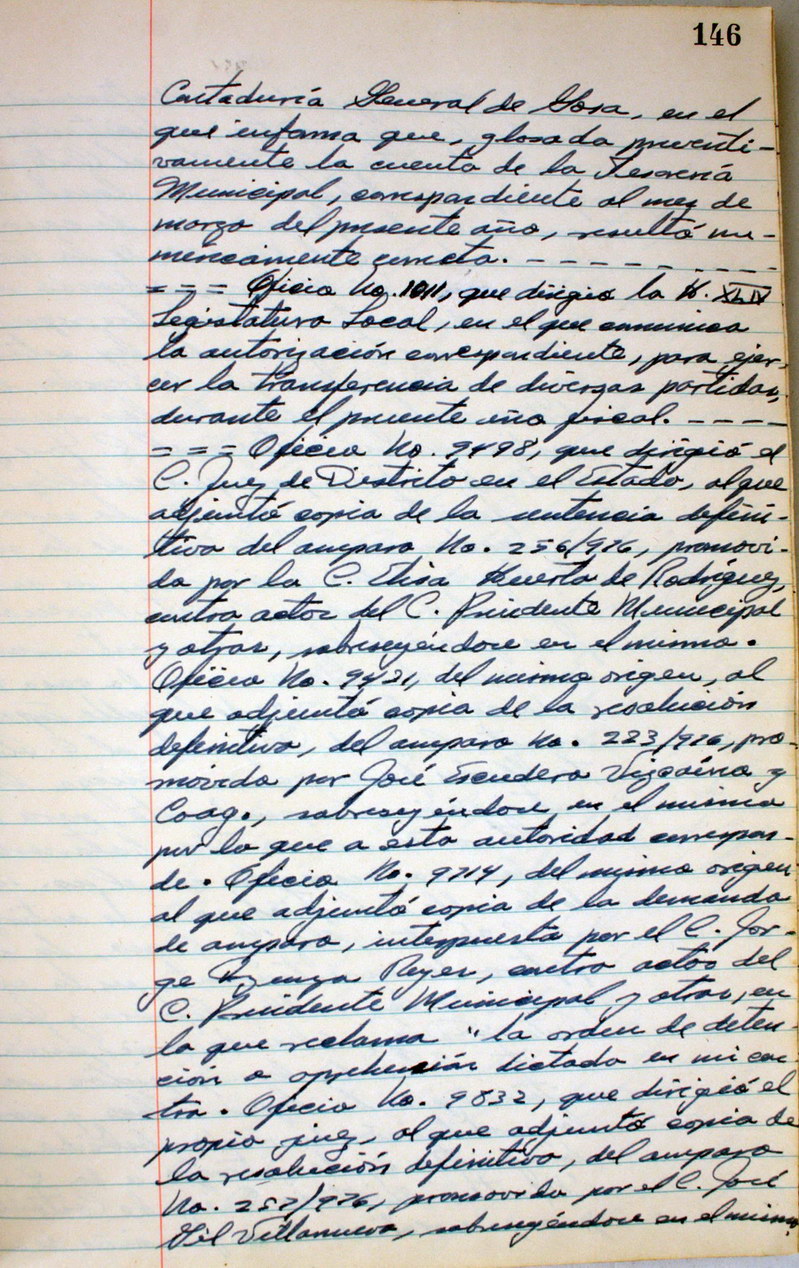 146
Contaduría General de Glosa, en el
que informa que, glosada preventi-
vamente la cuenta de la Tesorería
Municipal, correspondiente al mes de
marzo del presente año, resultó nu-
méricamente correcta. - - - - - - - - -
= = = Oficio No. 1011, que dirigió la H. XLIV
Legislatura Local, en el que comunica
la autorización correspondiente, para ejer-
cer la transferencia de diversas partidas,
durante el presente año fiscal. - - - -
= = = Oficio No. 9498, que dirigió el
C. Juez de Distrito en el Estado, al que
adjuntó copia de la sentencia defini-
tiva del amparo No. 256/976, promovi-
do por la C. Elisa Huerta de Rodríguez,
contra actos del C. Presidente Municipal
y otras, sobreseyéndose en el mismo.
Oficio No. 9421, del mismo origen, al
que adjuntó copia de la resolución
definitiva, del amparo No. 223/976, pro-
movido por José Escudero Vizcaíno y
Coag., sobreseyéndose en el mismo
por lo que a esta autoridad correspon-
de. Oficio No. 9714, del mismo origen
al que adjuntó copia de la demanda
de amparo, interpuesta por el C. Jor-
ge Reyes, contra actos del
C. Presidente Municipal y otras, en
la que reclama "la orden de deten-
ción o aprehensión dictada en mi con-
tra. Oficio No. 9832, que dirigió el
propio juez, al que adjuntó copia de
la resolución definitiva, del amparo
No. 257/976, promovido por el C. José
Gil Villanueva, sobreseyéndose en el mismo.